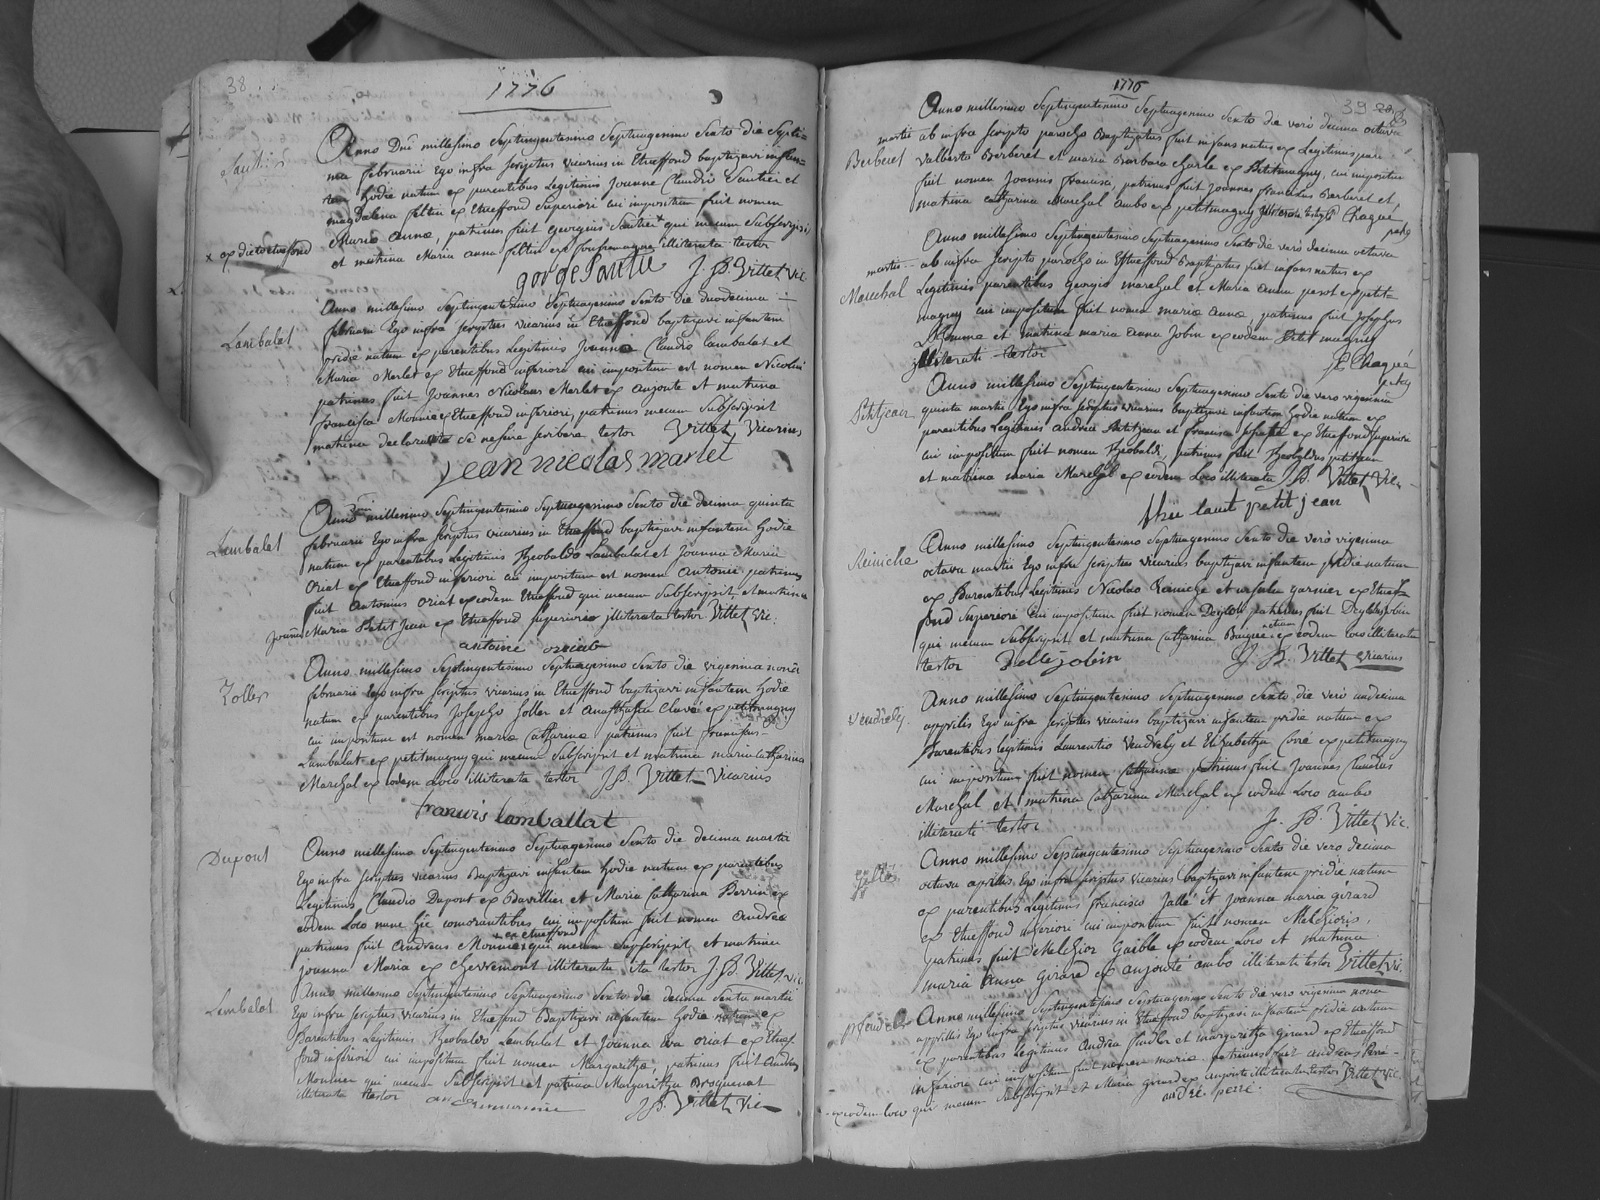 38
1776
Anno Dni millesimo Septingentesimo Septuagesimo Sexto die Septi
ma februarii Ego infra scriptus vicarius in Etueffond baptizavi infan
tem hodie natum ex parentibus Legitimis Joanne Claudio Sautier et
magdalena feltin ex Etueffond Superiori cui impositum fuit nomen
Maria Anna, patrinus fuit georgius Sautier x qui mecum Subscripsit
x ex dicto etueffond
et matrina Maria anna feltin ex illiterata testor
gorge Sautie J. B. Villet Vic
Lambalat
Anno millesimo Septingentesimo Septuagesimo Sexto die duodecima
februarii Ego infra scriptus vicarius in Etueffond baptizavi infantem
pridie natum ex parentibus Legitimis Joanne Claudio Lambalat et
Maria Merlet ex Etueffond inferiori cui impositum est nomen Nicolai
patrinus fuit Joannes Nicolaus Merlet ex anjoute et matrina
francisca Monnier ex Etueffond inferiori, patrinus mecum Subscripsit
matrina declaravit se nescire scribere testor Villet Vicarius
jean nicolas marlet
Lambalat
Anno millesimo Septingentesimo Septuagesimo Sexto die decima quinta
februarii Ego infra scriptus vicarius in Etueffond baptizavi infantem hodie
natum ex parentibus Legitimis Theobaldo Lambalat et Joanna Maria
Oriat ex Etueffond inferiori cui impositum est nomen Antonii patrinus
fuit Antonius Oriat ex eodem Etueffond qui mecum Subscripsit, et matrina
Maria Petit Jean ex Etueffond Superiori illiterata testor Villet Vic.
antoine orriat
Zoller
Anno millesimo Septingentesimo Septuagesimo Sexto die vigesima nona
februarii Ego infra scriptus vicarius in Etueffond baptizavi infantem hodie
natum ex parentibus Josepho Zoller et Anasthasia Clavé ex petitmagny
cui impositum est nomen maria Catharina patrinus fuit francis-
Lambalat ex petitmagny qui mecum Subscripsit et matrina maria catharina
Marchal ex eodem Loco illiterata testor J. B. Villet Vicarius
francois Lamballat
Dupont
Anno millesimo Septingentesimo Septuagesimo Sexto die decima martii
Ego infra scriptus vicarius Baptizavi infantem hodie natum ex parentibus
Legitimis Claudio Dupont ex Bavillier et Maria Catharina Perrin ex
eodem Loco nunc hic comorantibus cui impositum fuit nomen Andrea
ex etueffond
patrinus fuit Andreas Monnier qui mecum Subscripsit et matrina
joanna Maria ex Chevremont illiterata ita testor J. B. Villet Vic
Lambalat
Anno millesimo Septingentesimo Septuagesimo Sexto die decima Sexta martii
Ego infra scriptus vicarius in Etueffond Baptizavi infantem hodie natum ex
Parentibus Legitimis Theobaldo Lambalat et Joanna Oriat ex Etuef-
fond inferiori cui impositum fuit nomen Margaritha, patrinus fuit Andreas
Monnier qui mecum Subscripsit et patrina Margaritha
illiterata testor J. B. Villet Vic
39
1776
Anno millesimo Septingentesimo Septuagesimo Sexto die vero decima octava
martii ab infra scripto parocho Baptizatus fuit infans natus ex Legitimis paren
Berberet
Valberto Berberet et maria Barbara Charle ex Petitmagny, cui impositum
fuit nomen Joannis francisci, patrinus fuit Joannes franciscus Berberet et
matrina Catharina Marchal ambo ex petitmagny Chaque
Anno millesimo Septingentesimo Septuagesimo Sexto die vero decima octava
martii ab infra scripto parocho in Etueffond Baptizatus fuit infans natus ex
Marechal
Legitimis parentibus georgio marechal et Maria Anna perot ex petit-
magny cui impositum fuit nomen maria anna, patrinus fuit Josephus
L'homme et matrina maria anna Jobin ex eodem Petit magny
illiterati testor Chaque
Petitjean
Anno millesimo Septingentesimo Septuagesimo Sexto die vero vigesima
quinta martii Ego infra scriptus vicarius baptizavi infantem hodie natum ex
parentibus Legitimis Andrea Petitjean et francisca ex Etueffond Superiori
cui impositum fuit nomen Theobaldi, patrinus fuit Theobaldus petitjean
et matrina maria Marchal ex eodem Loco illiterata J. B. Villet Vic.
thie baut petit jean
Reiniche
Anno millesimo Septingentesimo Septuagesimo Sexto die vero vigesima
octava martii Ego infra scriptus vicarius baptizavi infantem pridie natum
ex Parentibus Legitimis Nicolao Reiniche et ursula garnier ex Etuef-
fond Superiori cui impositum fuit nomen patrinus fuit
qui mecum Subscripsit et matrina Catharina ex eodem loco illiterata
testor Delle jobin J. B. Villet Vicarius
Vendrely
Anno millesimo Septingentesimo Septuagesimo Sexto die vero undecima
apprilis Ego infra scriptus vicarius baptizavi infantem pridie natum ex
Parentibus legitimis Laurentio Vendrely et Elizabetha Corré ex petitmagny
cui impositum fuit nomen Catharina patrinus fuit Joannes Claudius
Marchal et matrina Catharina Marchal ex eodem Loco ambo
illiterati testor J. B. Villet Vic.
Anno millesimo Septingentesimo Septuagesimo Sexto die vero decima
octava aprilis Ego infra scriptus vicarius baptizavi infantem pridie natum
ex parentibus Legitimis francisco Jallé et Joanna maria girard
ex Etueffond inferiori cui impositum fuit nomen Melchioris,
patrinus fuit Melchior Gaible ex eodem Loco et matrina
maria Anna Girard ex anjoute ambo illiterati testor Villet Vic.
Anno millesimo Septingentesimo Septuagesimo Sexto die vero vigesima nona
apprilis Ego infra scriptus vicarius in Etueffond baptizavi infantem pridie natum
ex parentibus Legitimis Andrea et margaritha girard ex Etueffond
inferiori cui impositum fuit nomen maria patrinus fuit andreas Perré
ex eodem loco qui mecum Subscripsit et Maria girard ex anjoute illiterata testor Villet Vic.
andré perré